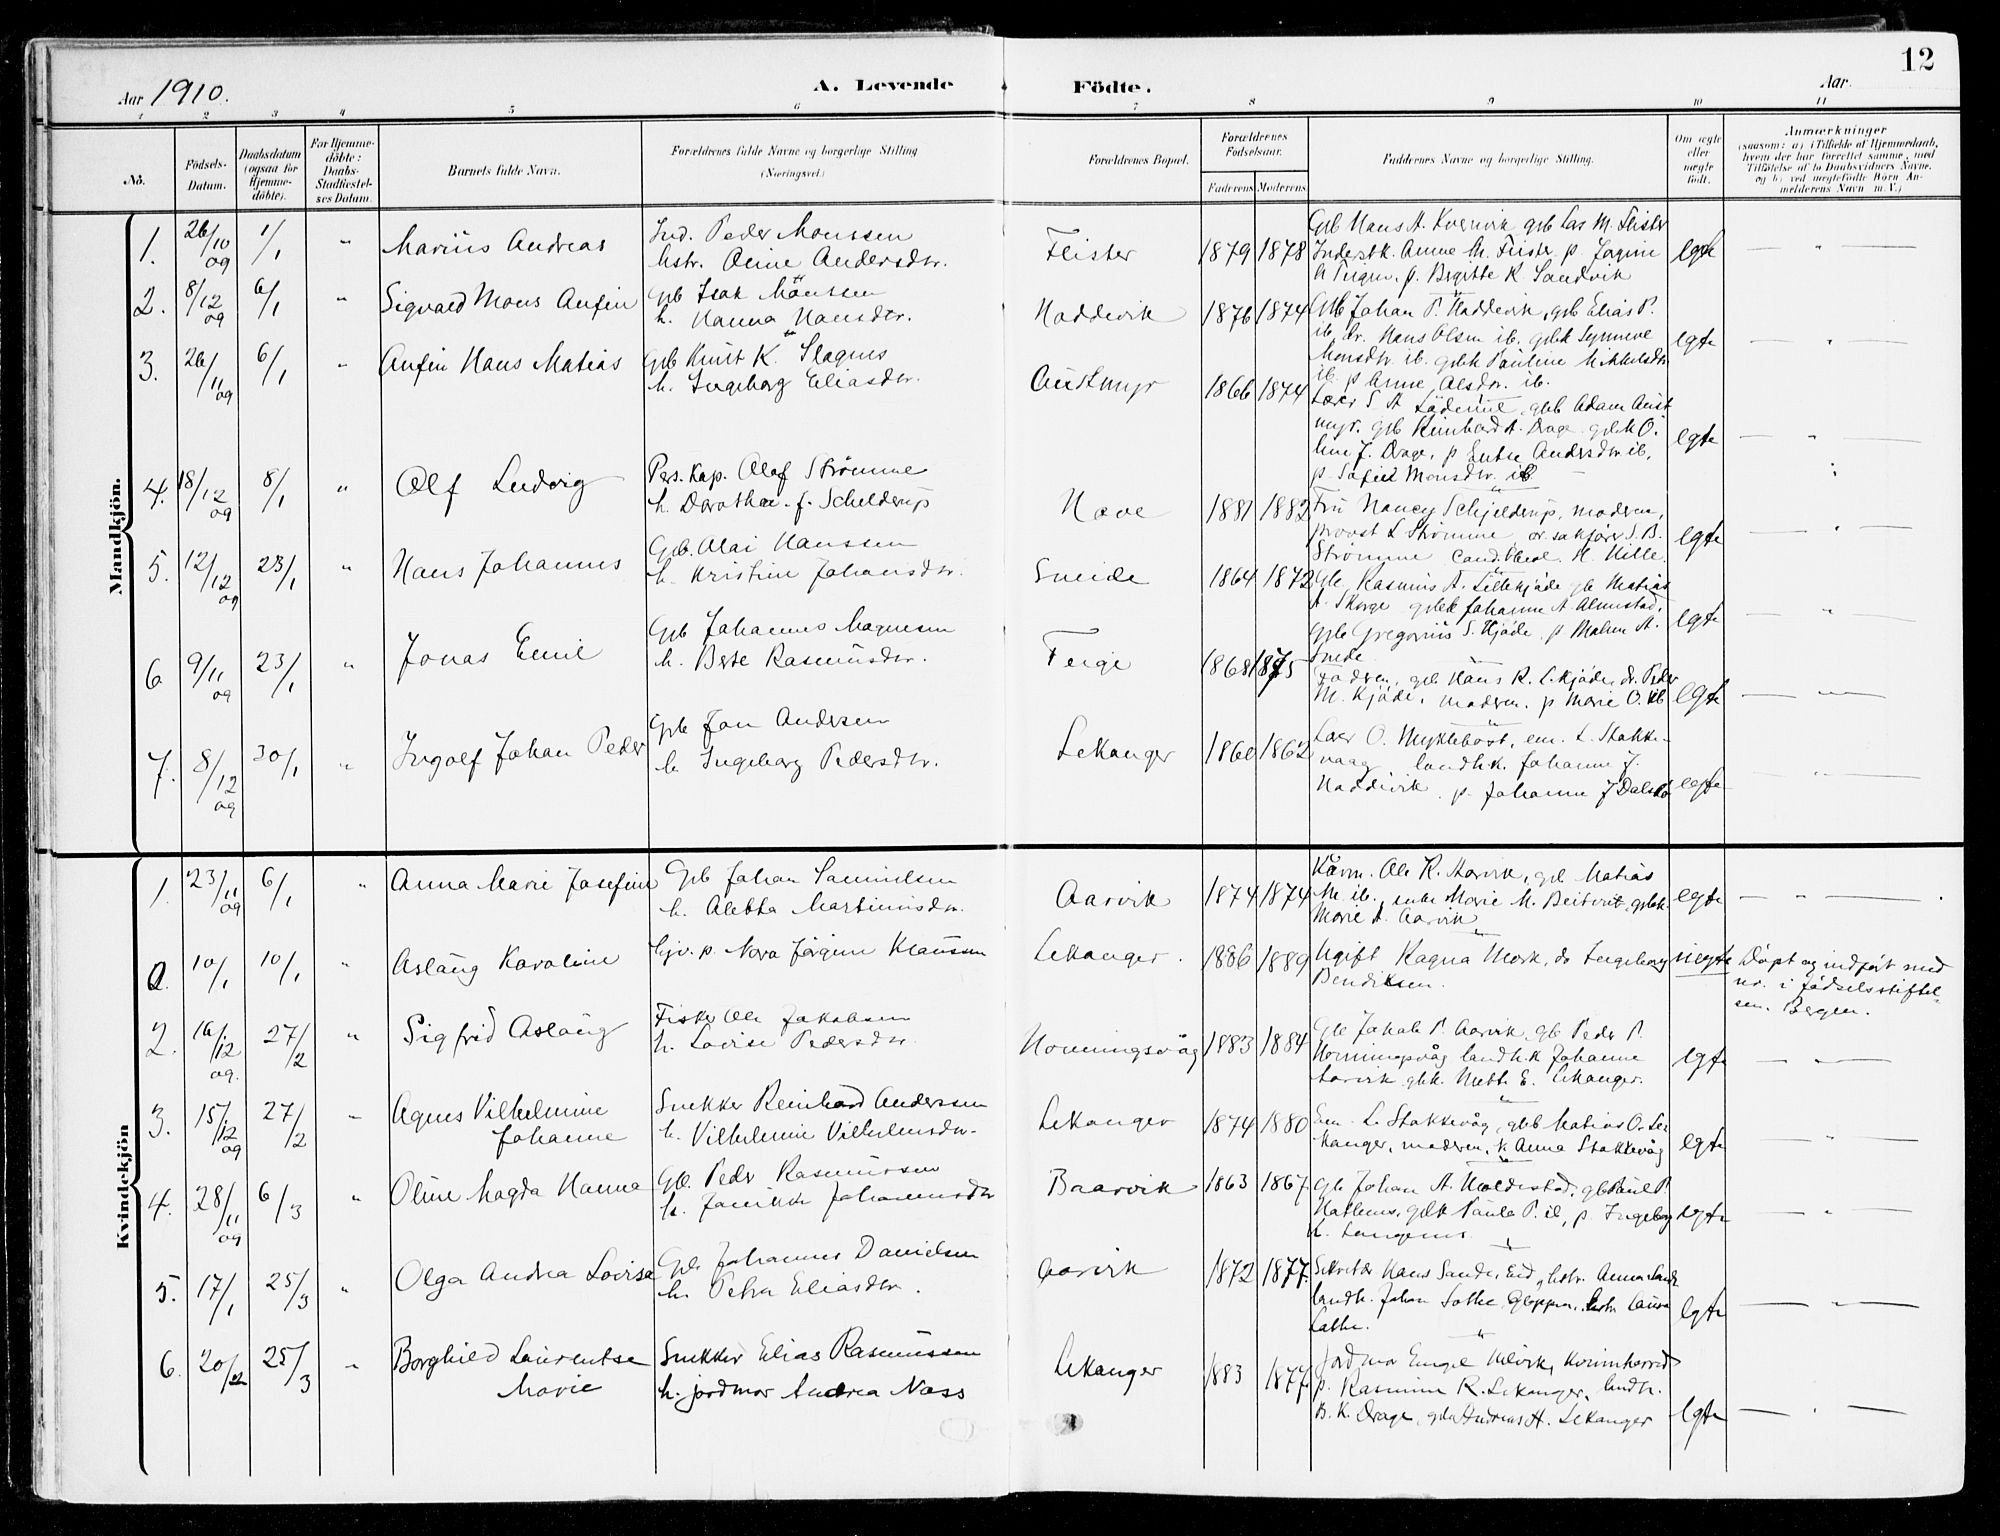 12
Aar 1910.
A. Levende Födte.
Aar
1 2 3 4 5 6 7 8 9 10 11
No.
Födsels-Datum.
Daabsdatum (ogsaa for Hjemme-döbte).
For Hjemme-döbte: Daabs-Stadfæstel-ses Datum.
Barnets fulde Navn.
Forældrenes fulde Navne og borgerlige Stilling (Næringsvei.)
Forældrenes Bopæl.
Forældrenes Fødselsaar.
Faderens Moderens
Faddernes Navne og borgerlige Stilling.
Om ægte eller uægte født.
Anmærkninger
(saasom: a) i Tilfælde af Hjemmedaab, hvem der har forrettet samme, med Tilföielse af to Daabsvidners Navne. og b) ved uægtefödte Börn An-melderens Navn m. V.)
Mandkjön.
1. 26/10 09 1/1 " Marius Andreas
Ind. Peder Monssen
hstr. Oline Andersdtr.
Flister 1879 1878
Gbr Hans A. Kvernvik, gbr Las M. Flister
Anne M. Flister, p. Jørgine
p. Birgitte K Sandvik
egte — " —
2. 8/12 09 6/1 " Sigvard Mons Anfin
Gbr Isak Mönssen
h. Hanna Hansdtr.
Haddevik 1876 1874
Gbr Johan P. Haddevik, gbr Elias P.
ib. dr. Hans Olsen ib. gbrk Synnøve
Monsdtr ib. gbrk Pauline Mikkelsdtr
ib. p Anne Olsdtr. ib.
egte — " —
3. 26/11 09 6/1 " Anfin Hans Matias
Gbr Knut K. Slagnes
h. Ingeborg Eliasdtr.
Austmyr 1866 1874
Lærer S. A. gbr Adam Aust
myr. gbr Reinhard A. Drage gbrk O.
line J. Drage, p Andersdtr ib,
p. Sofie Monsdtr. ib —
egte — " —
4. 18/12 09 8/1 " Olf Ludvig
Pers. Kap. Olaf Strømme
h. Dorothea f. Schelderup
Hove 1881 1882
Fru Nancy Schjelderup, moderen,
provst L Strømme, or. sakfører S. B.
Strømme Cand. theol. H. Hille.
egte — " —
5. 12/12 09 23/1 " Hans Johannes
Gbr. Olai Hanssen
h. Kristine Johansdtr.
Sneide 1864 1872
Gbr Rasmus A. Lillekjøde gbr Matias
A. Skorge gbrk Johanne A Almestad,
gbr Gregorius S. Kjøde, p Malene A.
Sneide
egte — " —
6 9/11 09 23/1 " Jonas Emil
Gbr Johannes Magnesen
h. Berte Rasmusdtr.
Feige 1868 1875
Faderen, gbr Hans R. L. kjøde, dr. Peder
M. Kjøde, moderen. p Marie O. ib
egte — " —
7. 8/12 09 30/1 " Ingolf Johan Peder
Gbr Jon Andersen
h. Ingeborg Pedersdtr.
Lekanger 1860 1862
Lær O. Myklebost, em. L. Stokke-
vaag landh.k. Johanne J.
Haddevik. p. Johanne J Dalsbø
egte — " —
Kvindekjön
1. 23/11 09 6/1 " Anna Marie Josefine
Gbr Johan Samuelsen
h. Aletta Martinusdtr.
Aarvik 1874 1874
Kårm. Ole R. Aarvik, gbr Matias
M. ib. enke Marie M. Beitveit, gbrk.
Marie A. Aarvik
egte — " —
0. 10/1 10/1 " Aslaug Karoline
hjv. p. Nora Jörgine Klaussen
Lekanger. 1886 1889
Ugift Ragna Mork, do Ingeborg
Bendiksen.
uegte Döpt og indført med
nr. i fødselsstiftel-
sen. Bergen.
2. 16/12 09. 27/2 " Sigfrid Aslaug
Fisker Ole Jakobsen
h. Lovise Pedersdtr.
Honningsvåg 1883 1884
Gbr Jakob P. Aarvik, gbr Peder P.
Honningsvåg landh.k Johanne
Aarvik gbrk. Mette E. Lekanger.
egte — " —
3. 15/12 09 27/2 " Agnes Vilhelmine
Johanne
Snekker Reinhard Anderssen
h. Vilhelmine Vilhelmsdtr.
Lekanger 1874 1880
Em. L. Stokkevåg, gbr Matias O. Le
kanger, moderen, p Anna Stokkevåg
egte — " —
4. 28/11 09 6/3 " Oline Magda Hanna
Gbr. Peder Rasmussen
h. Jannikke Johannesdtr
Baarvik 1863 1867
gbr Johan A. Moldestad, gbr Paul P.
gbrk Paula P. ib, p. Ingeborg
egte — " —
5. 17/1 25/3 " Olga Andrea Lovise
Gbr Johannes Danielsen
h. Petra Eliasdtr.
Aarvik 1872 1877.
Sekretær Hans Sande, Eid, hstr. Anna Sande
landh. Johan Sothe, Gloppen, hstr Laura
Sothe.
egte — " —
6. 20/2 25/3 " Borghild Laurentse
Marie
Snekker Elias Rasmussen
h. jordmor Andrea Nass
Lekanger 1883 1877.
Jordmor Engel Kvinnherred
p. Rasmine R. Lekanger, landh.
B. K. Drage, gbr Andreas H. Lekanger
egte — " —